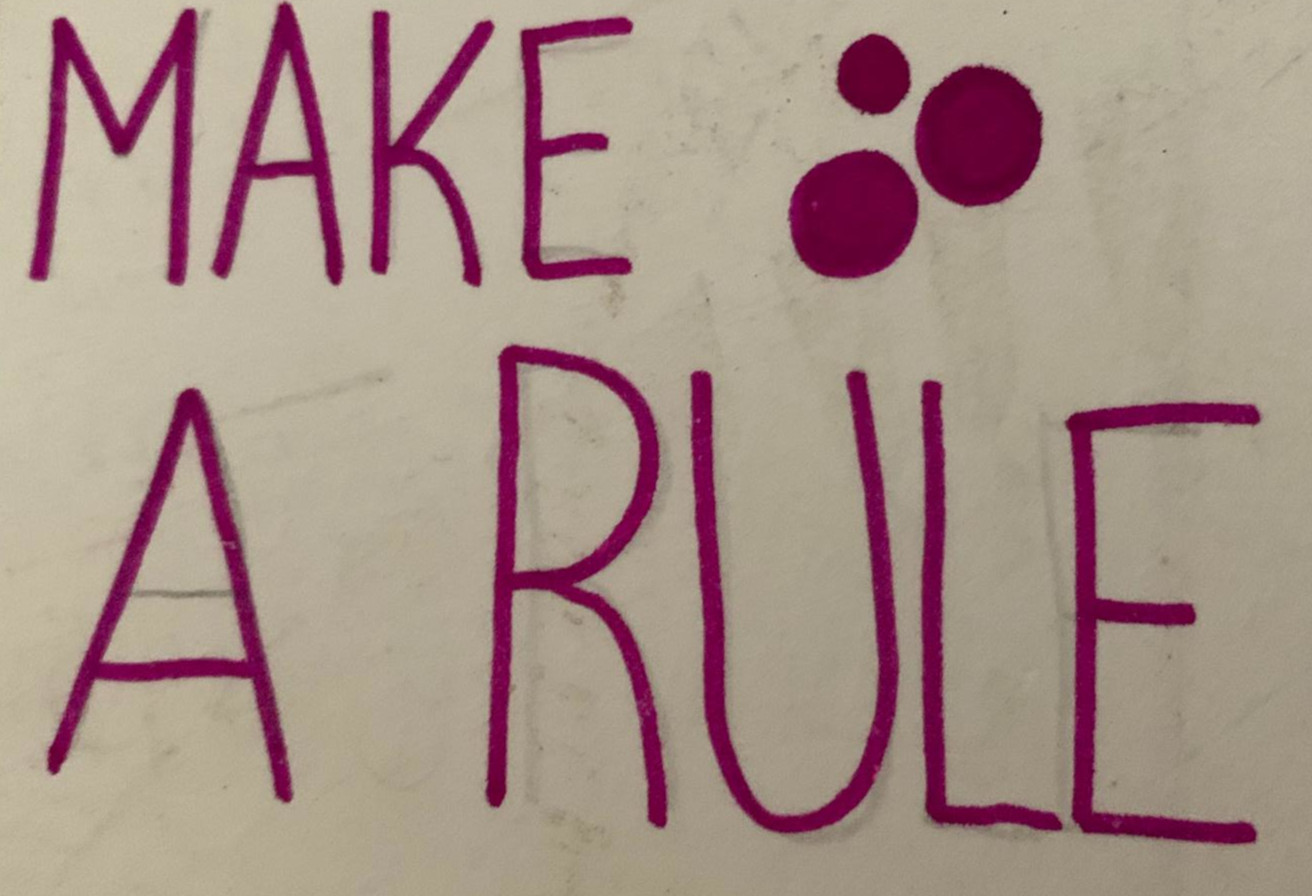 MAKE
A RULE